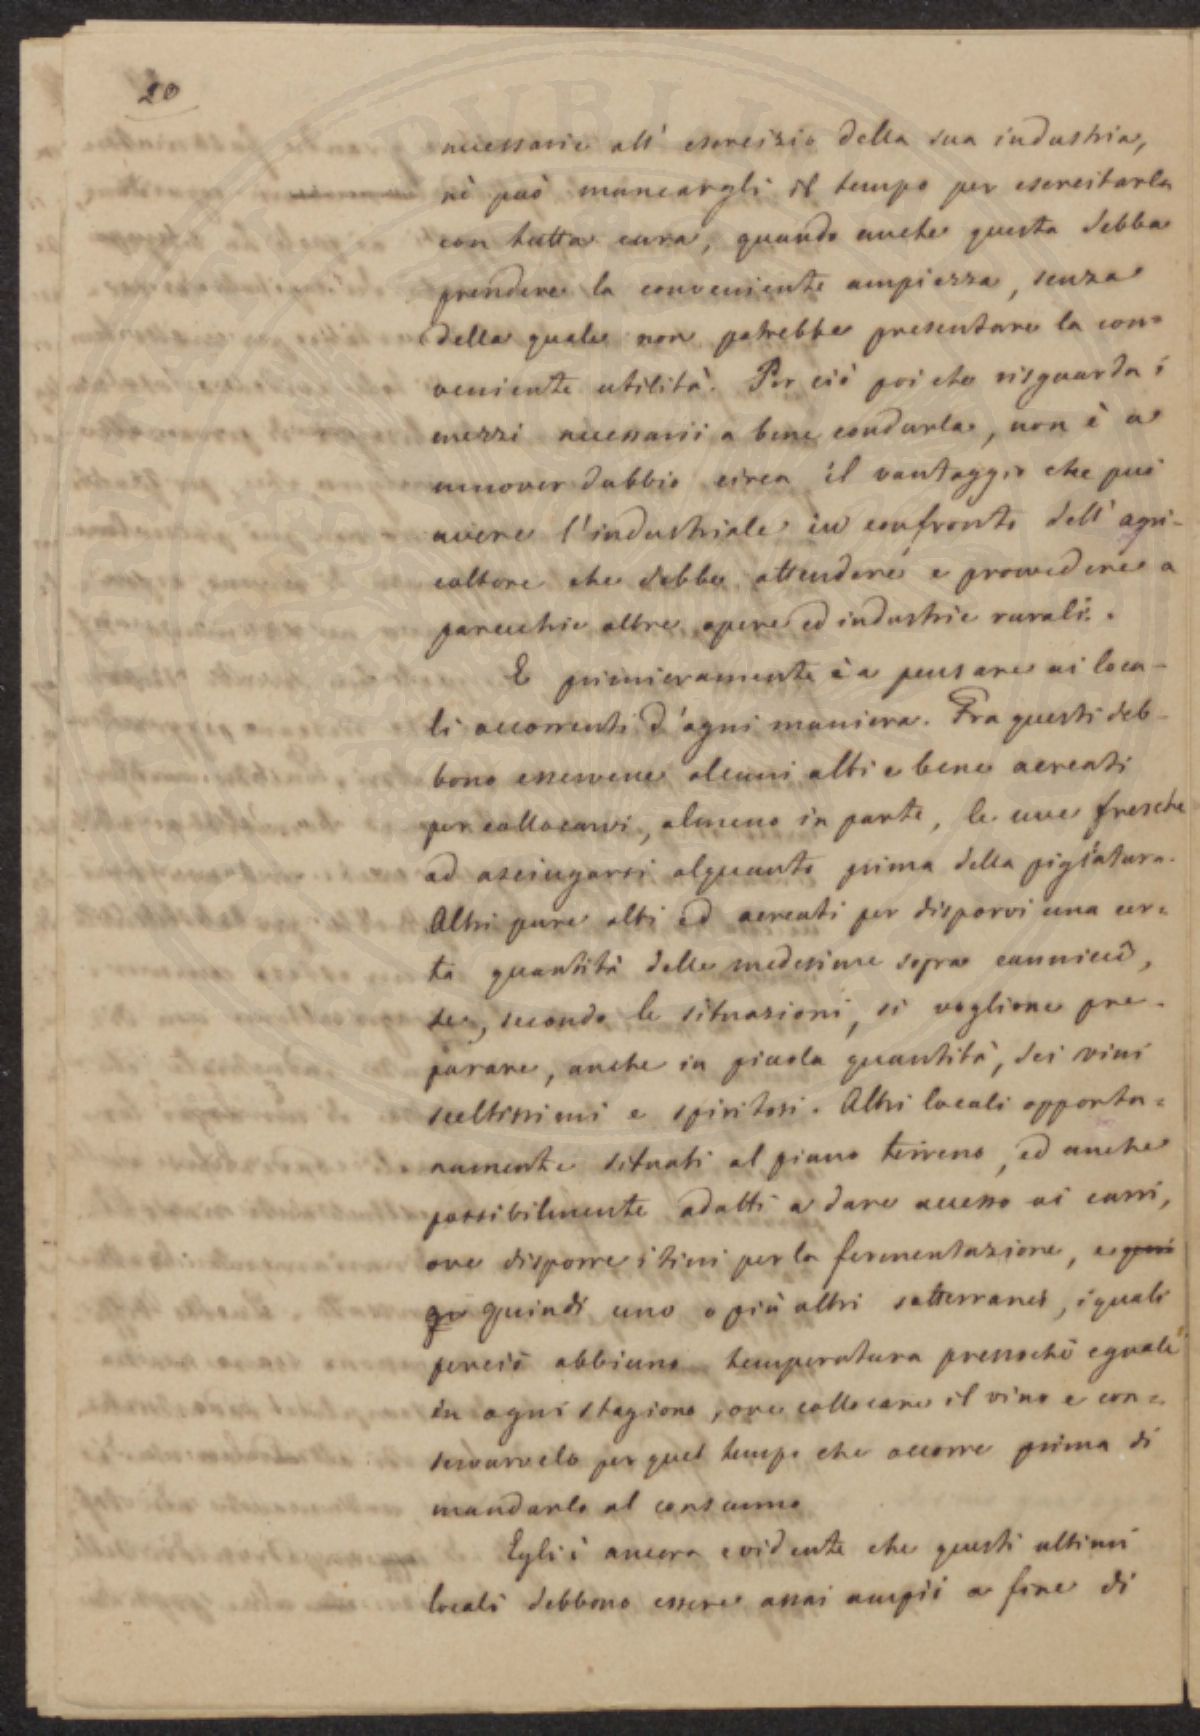 20
necessarie all' esercizio della sua industria,
nè può mancargli il tempo per esercitarla
con tutta cura, quando anche questa debba
prendere la conveniente ampiezza, senza
della quale non potrebbe presentare la con=
veniente utilità. Per ciò poi che risguarda i
mezzi necessarii a bene condurla, non è a
muover dubbio circa il vantaggio che può
avere l'industriale in confronto dell' agri-
coltore che debbe attendere e provvedere a
parecchie altre opere ed industrie rurali.
E primieramente è a pensare ai loca-
li occorrenti d'ogni maniera. Fra questi deb-
bono esservene alcuni alti e bene aereati
per collocarvi, almeno in parte, le uve fresche
ad asciugarsi alquanto prima della pigiatura.
Altri pure alti ed aereati per disporvi una cer=
ta quantità delle medesime sopra cannicci,
se, secondo le situazioni, si vogliono pre-
parare, anche in picola quantità, dei vini
sceltissimi e spiritosi. Altri locali opportu=
namente situati al piano terreno, ed anche
possibilmente adatti a dare accesso ai carri,
ove disporre i tini per la fermentazione, e
quindi uno o più altri sotterranei, i quali
perciò abbiano temperatura pressochè eguale
in ogni stagione, ove collocare il vino e con=
servarvelo per quel tempo che occorre prima di
mandarlo al consumo
Egli è ancora evidente che questi ultimi
locali debbono essere assai ampii a fine di